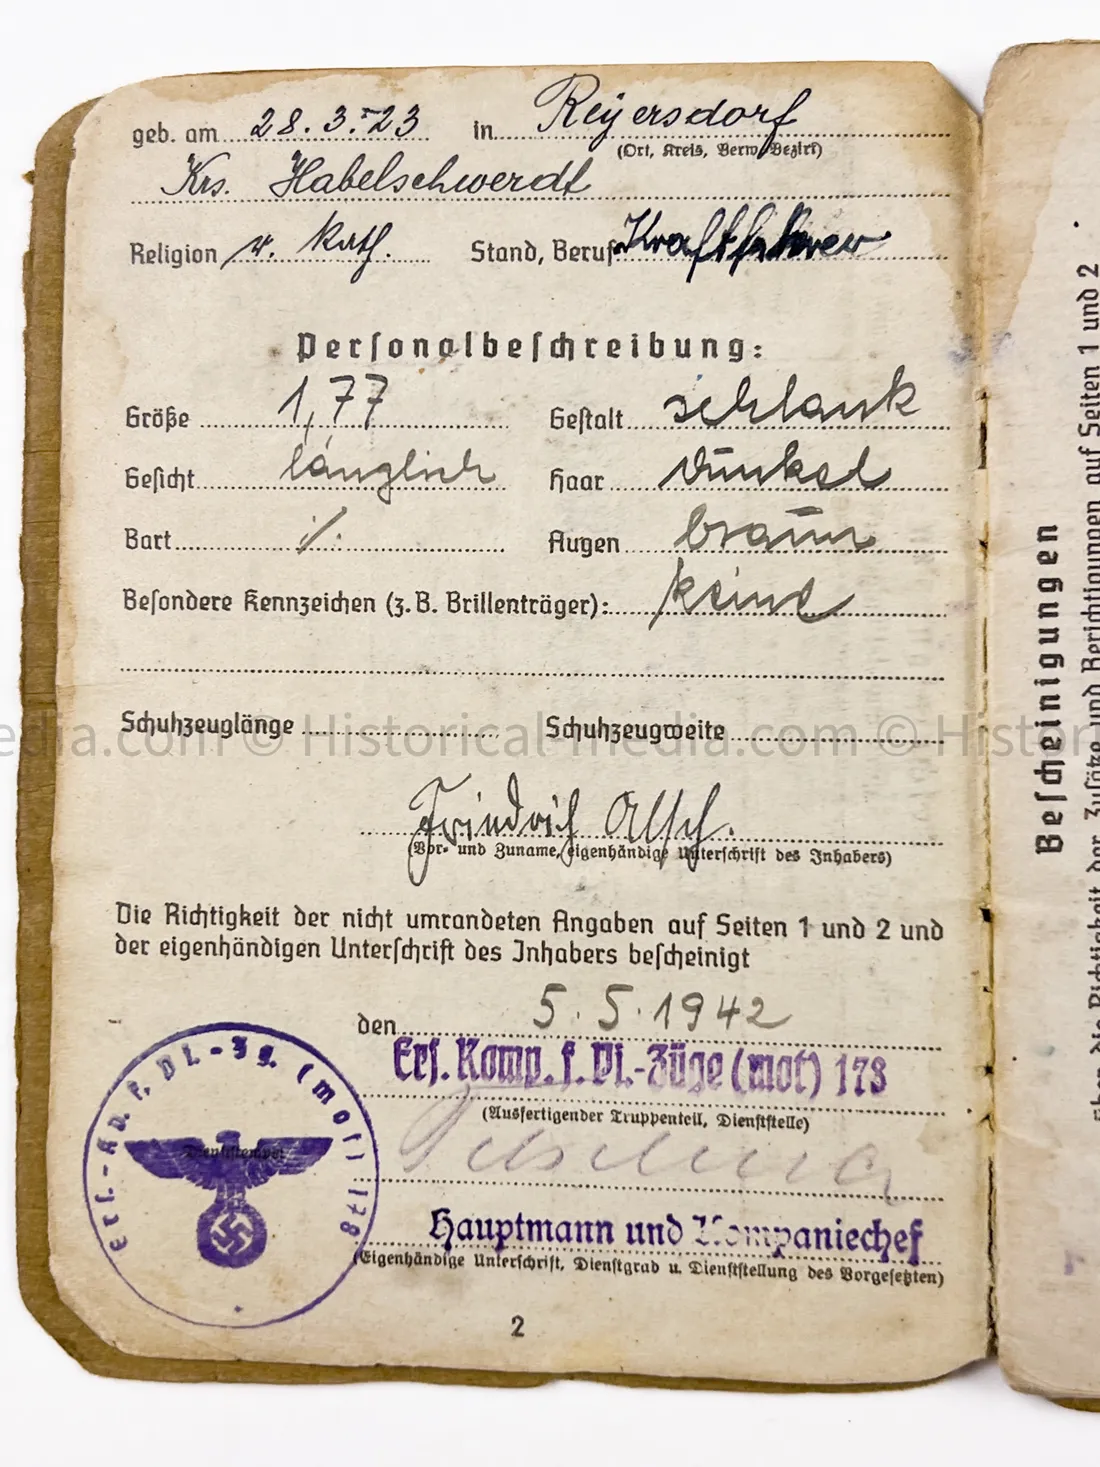 geb. am 28.3.23 in Reyersdorf
(Ort, Kreis, Verw.-Bezirk)
Krs. Habelschwerdt
Religion r. kath. Stand, Beruf Kraftfahrer
Personalbeschreibung:
Größe 1,77 Gestalt schlank
Gesicht länglich Haar dunkel
Bart ./. Augen braun
Besondere Kennzeichen (z. B. Brillenträger): keine
Schuhzeuglänge Schuhzeugweite
media.com © Historical-media.com © Histor
Friedrich
(Vor- und Zuname, eigenhändige Unterschrift des Inhabers)
Die Richtigkeit der nicht umrandeten Angaben auf Seiten 1 und 2 und
der eigenhändigen Unterschrift des Inhabers bescheinigt
den 5.5.1942
Ers. Komp. f. Pi.-Züge (mot) 178
(Ausfertigender Truppenteil, Dienststelle)
Hauptmann und Kompaniechef
(Eigenhändige Unterschrift, Dienstgrad u. Dienststellung des Vorgesetzten)
Ers.-Kp. f. Pi.-Zg. (mot) 178
Dienststempel
2
Bescheinigungen
der Zusätze und Berichtigungen auf Seiten 1 und 2